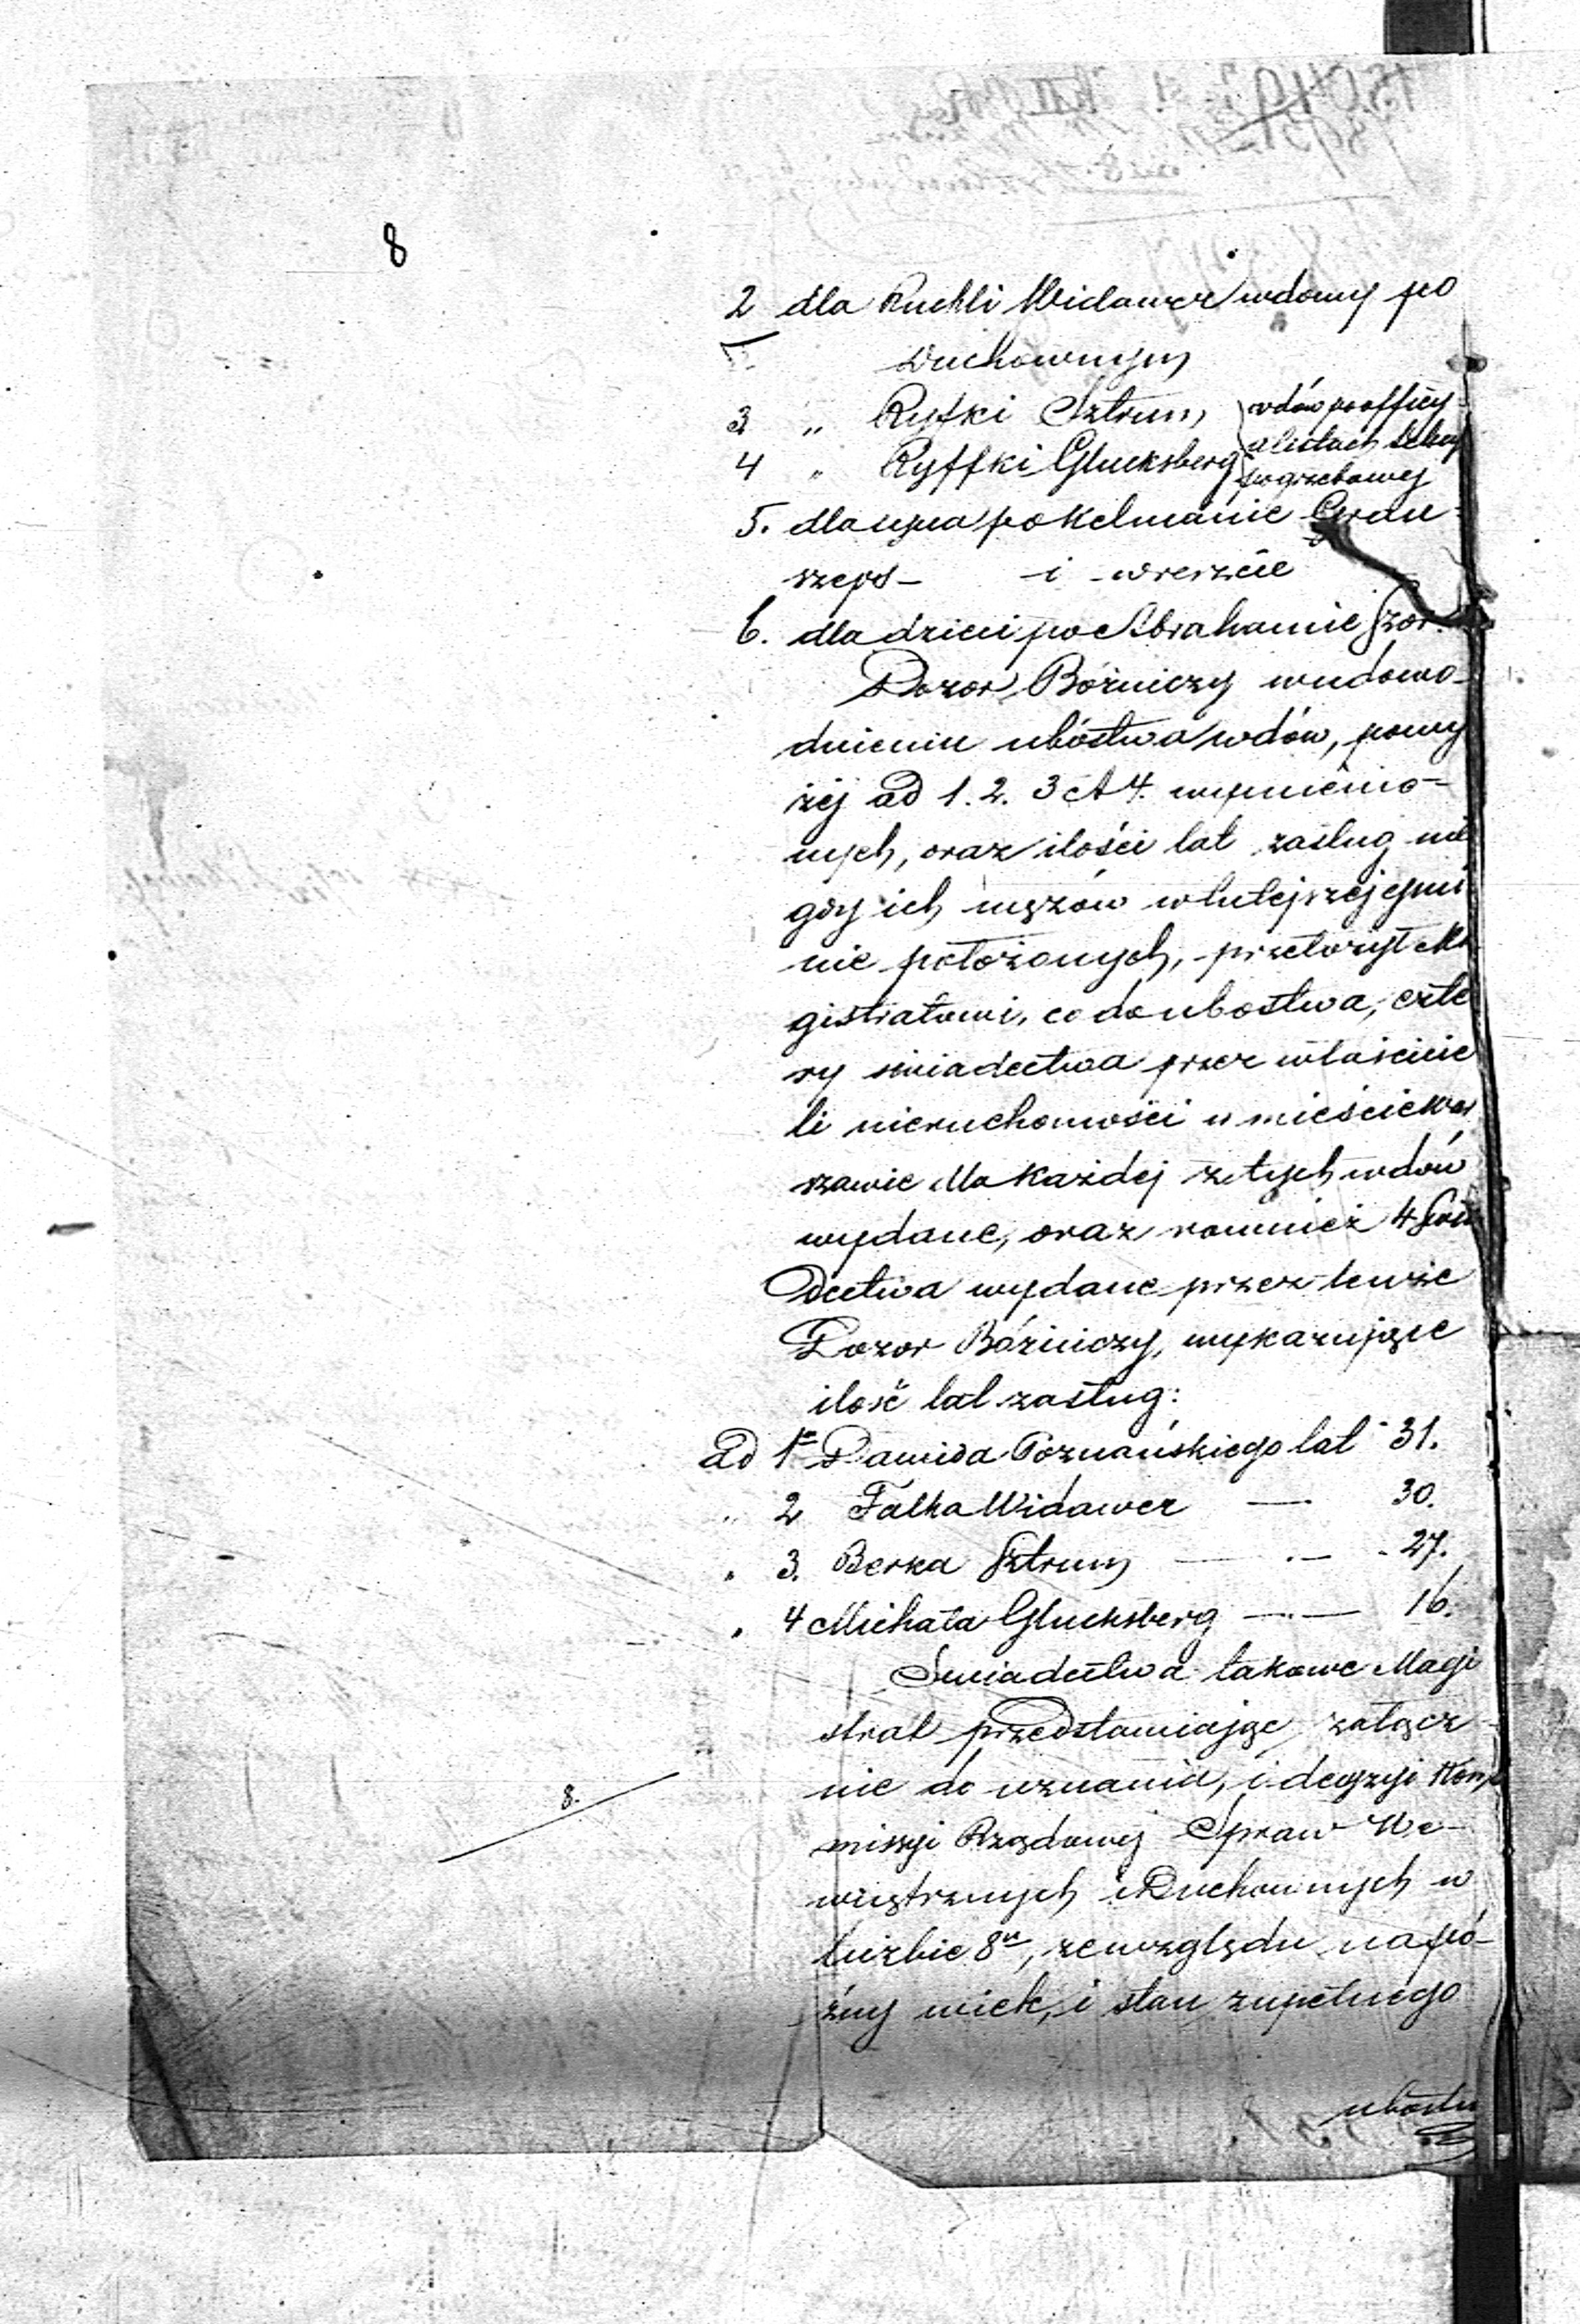 8
2 dla Ruchli Widawer wdowy po
Duchownym
3 „ Ryfki Sztrum } wdów po officy-
4 „ Ryffki Glucksberg } alistach
pogrzebowej
5. dla syna po Kelmanie Gran-
szeps – i wreszcie
6. dla dzieci po Abrahamie Szor.
Dozor Bóżniczy w udowo-
dnieniu ubóstwa wdów, powy
żej ad 1. 2. 3 et 4. wymienio-
nych, oraz ilości lat zasług nie
gdy ich mężów w tutejszej gmi
nie położonych, przełożył Ma
gistratowi, co do ubostwa, czte
ry swiadectwa przez właścicie
li nieruchomości w mieście War
szawie dla każdej z tych wdów
wydane, oraz rownież 4 Swia
dectwa wydane przez tenże
Dozor Bóżniczy, wykazujące
ilość lat zasług:
ad 1e Dawida Poznańskiego lat 31.
„ 2 Falka Widawer — 30.
„ 3. Berka Sztrum — . — 27.
„ 4 Michała Glucksberg — . — 16.
Swiadectwa takowe Magi
strat przedstawiając załącz-
nie do uznania, i decyzyi Kom
missyi Rządowej Spraw We-
8.
wnętrznych i Duchownych w
liczbie 8u, ze względu na pó-
źny wiek, i stan zupełnego
ubostw